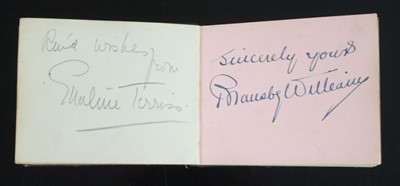 Kind wishes
from
Ellaline Terriss
Sincerely yours
Bransby Williams